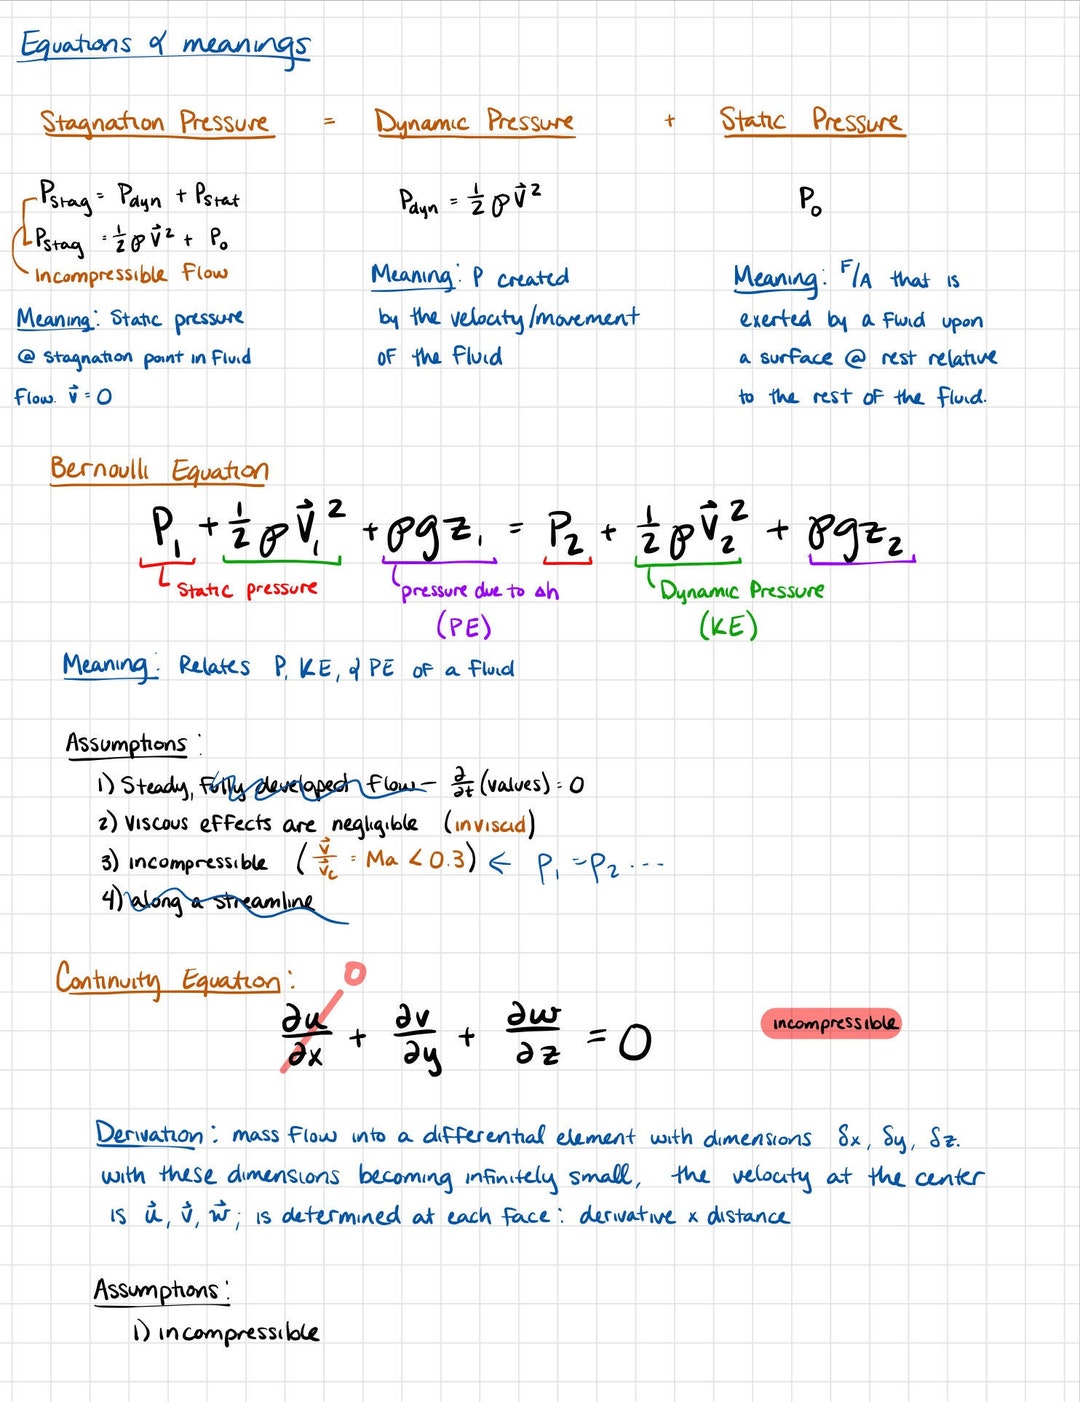 Equations & meanings
Stagnation Pressure = Dynamic Pressure + Static Pressure
P_stag = P_dyn + P_stat
P_stag = ½ρv⃗² + P₀
Incompressible Flow
Meaning: Static pressure
@ stagnation point in fluid
flow. v⃗ = 0
P_dyn = ½ρv⃗²
Meaning: P created
by the velocity/movement
of the fluid
P₀
Meaning: F/A that is
exerted by a fluid upon
a surface @ rest relative
to the rest of the fluid.
Bernoulli Equation
P₁ + ½ρV⃗₁² + ρgz₁ = P₂ + ½ρV⃗₂² + ρgz₂
Static pressure
pressure due to Δh
(PE)
Dynamic Pressure
(KE)
Meaning: Relates P, KE, & PE of a fluid
Assumptions:
1) Steady, fully developed flow – ∂/∂t (values) = 0
2) Viscous effects are negligible (inviscid)
3) incompressible (v⃗/v⃗c = Ma < 0.3) ← ρ₁ = ρ₂ ...
4) along a streamline
Continuity Equation:
0
∂u/∂x + ∂v/∂y + ∂w/∂z = 0
incompressible
Derivation: mass flow into a differential element with dimensions δx, δy, δz.
with these dimensions becoming infinitely small, the velocity at the center
is u⃗, v⃗, w⃗; is determined at each face: derivative x distance
Assumptions:
1) incompressible